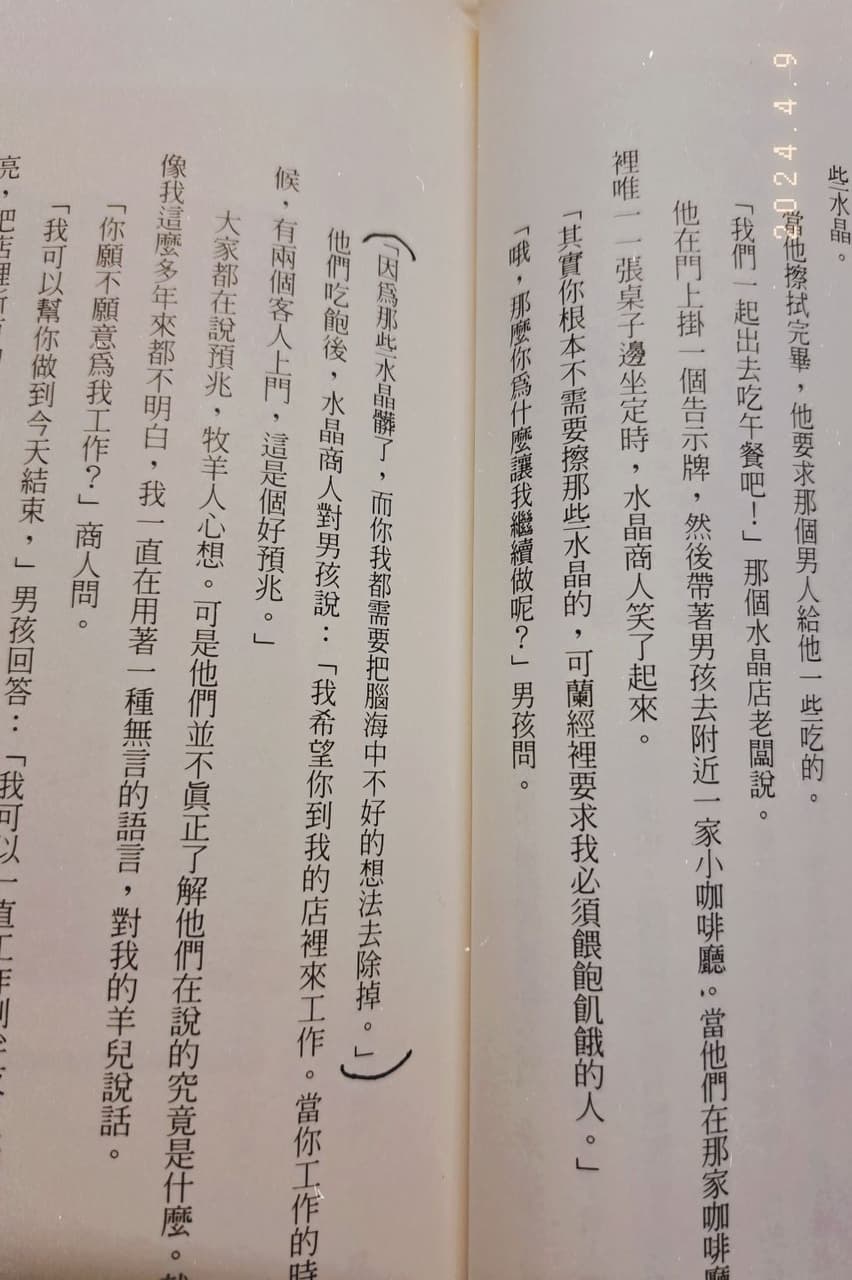 些水晶。
當他擦拭完畢，他要求那個男人給他一些吃的。
「我們一起出去吃午餐吧！」那個水晶店老闆說。
他在門上掛一個告示牌，然後帶著男孩去附近一家小咖啡廳。當他們在那家咖啡廳
裡唯一一張桌子邊坐定時，水晶商人笑了起來。
「其實你根本不需要擦那些水晶的，可蘭經裡要求我必須餵飽飢餓的人。」
「哦，那麼你爲什麼讓我繼續做呢？」男孩問。
「因爲那些水晶髒了，而你我都需要把腦海中不好的想法去除掉。」
他們吃飽後，水晶商人對男孩說：「我希望你到我的店裡來工作。當你工作的時
候，有兩個客人上門，這是個好預兆。」
大家都在說預兆，牧羊人心想。可是他們並不眞正了解他們在說的究竟是什麼。
像我這麼多年來都不明白，我一直在用著一種無言的語言，對我的羊兒說話。
「你願不願意爲我工作？」商人問。
「我可以幫你做到今天結束，」男孩回答：「我可以一直工作到
亮，把店裡所
2024.4.9